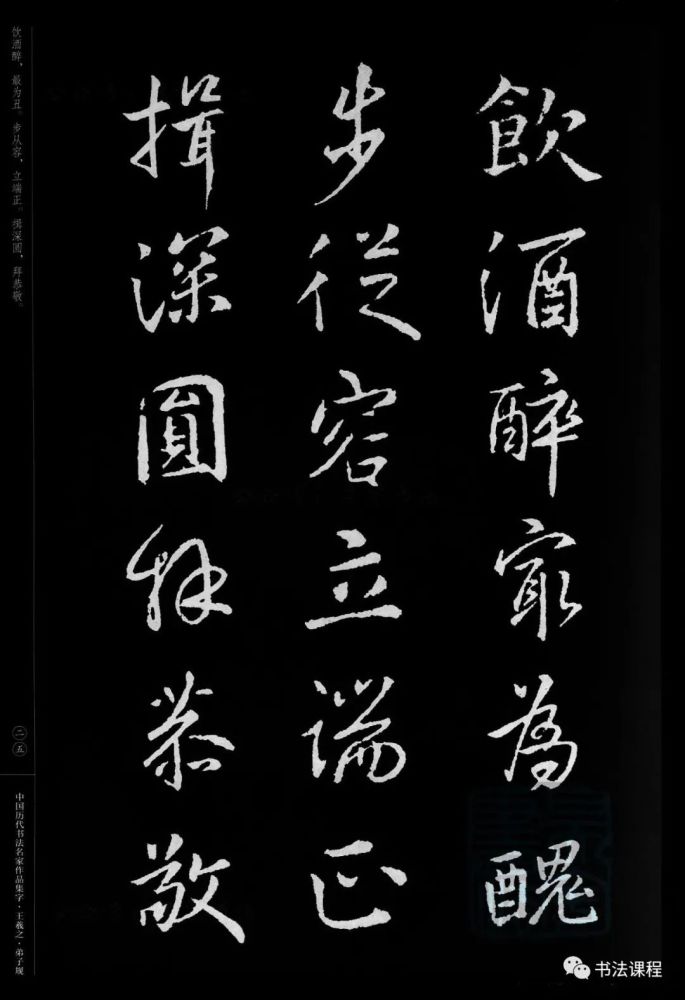 飲酒醉寂為醜
步從容立端正
揖深圓拜恭敬
饮酒醉，最为丑。步从容，立端正。揖深圆，拜恭敬。
二五
中国历代书法名家作品集字·王羲之·弟子规
书法课程